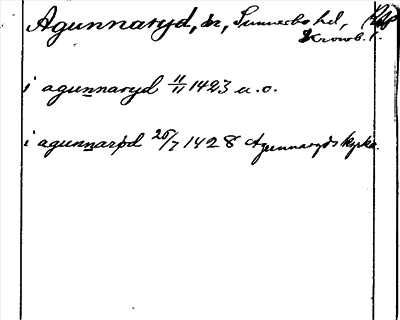 Agunnaryd, sn, Sunnerbo hd,
Kronob. l.
i agunnaryd 11/11 1423 u. o.
i agunnarød 25/7 1428 Agunnaryds kyrka.